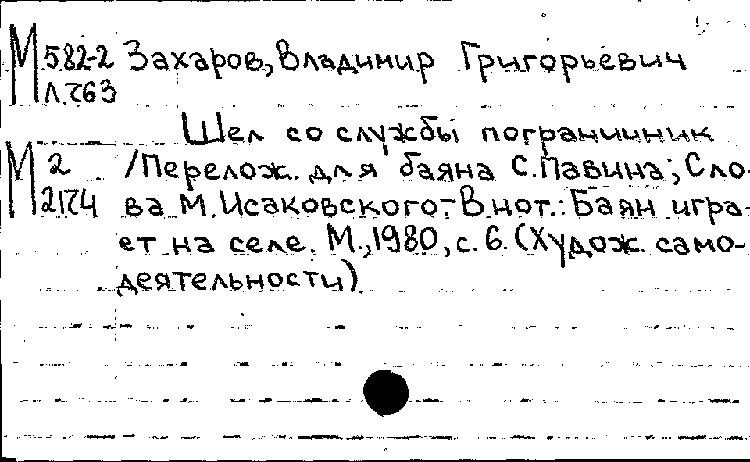 М 582-2 Захаров, Владимир Григорьевич
Л 763
Шел со службы пограничник
М 2 /Перелож. для баяна С. Павина; Сло-
2174 ва М. Исаковского.-В нот.: Баян игра-
ет на селе. М., 1980, с. 6. (Худож. само-
деятельности)